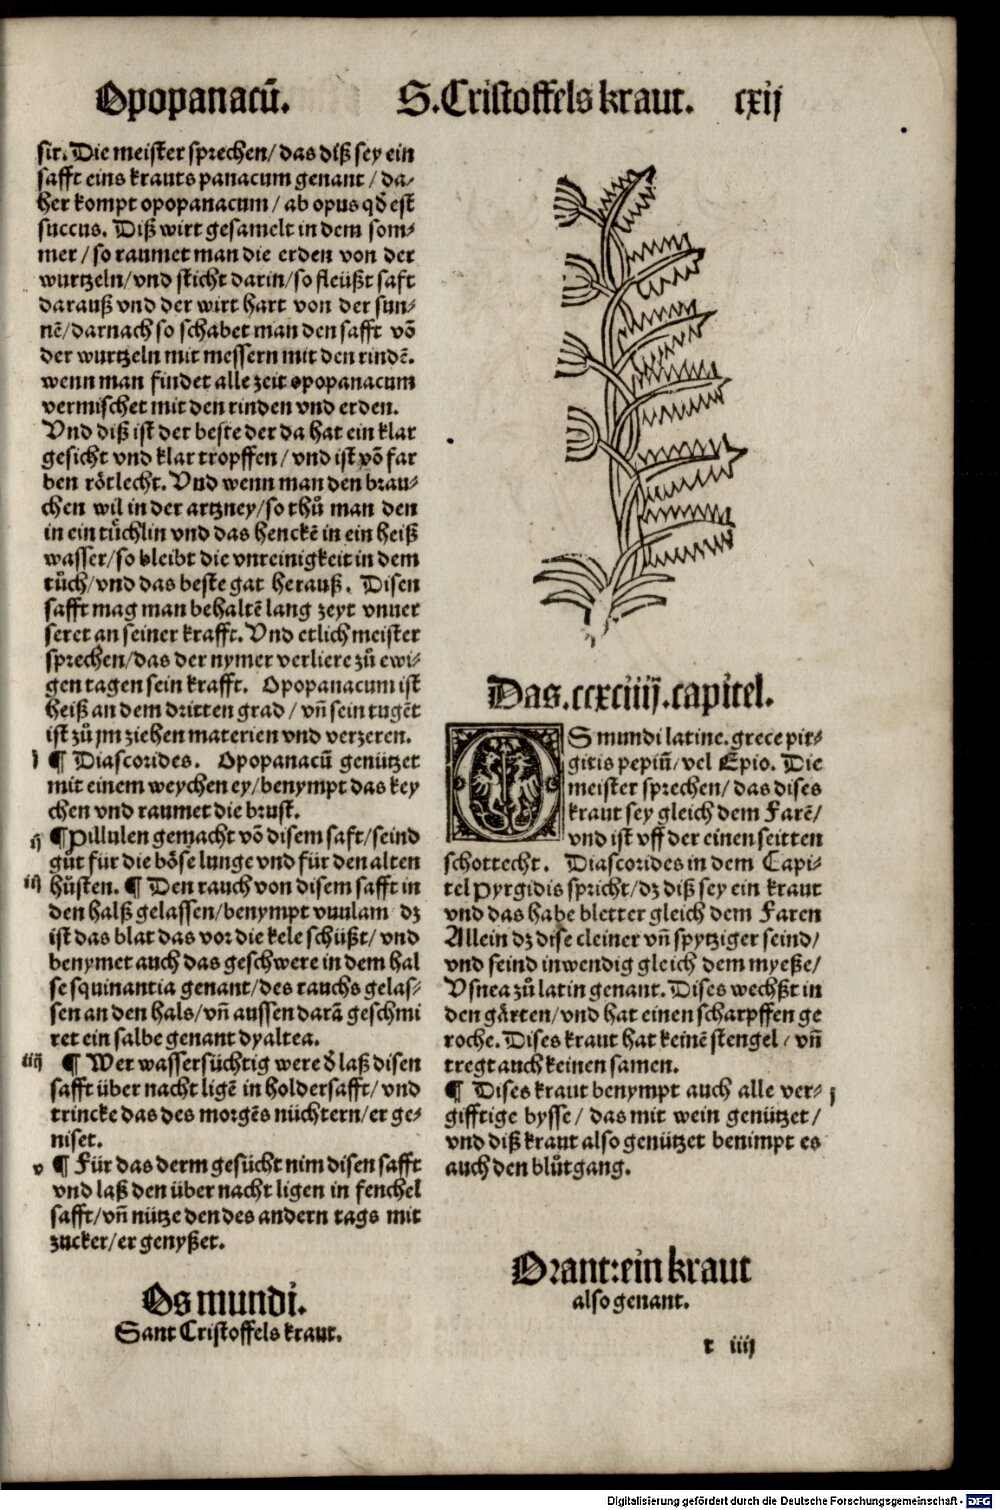 Opopanacū.
S. Cristoffels kraut.
cxij
sir. Die meister sprechen/ das diß sey ein
safft eins krauts panacum genant / da-
her kompt opopanacum / ab opus qđ est
succus. Diß wirt gesamelt in dem som-
mer / so raumet man die erden von der
wurtzeln/ vnd sticht darin/ so fleüßt saft
darauß vnd der wirt hart von der sun-
nē/ darnach so schabet man den safft vō
der wurtzeln mit messern mit den rindē.
wenn man findet alle zeit opopanacum
vermischet mit den rinden vnd erden.
Vnd diß ist der beste der da hat ein klar
gesicht vnd klar tropffen/ vnd ist vō far
ben rötlecht. Vnd wenn man den brau-
chen wil in der artzney/ so thů man den
in ein tüchlin vnd das henckē in ein heiß
wasser/ so bleibt die vnreinigkeit in dem
tůch/ vnd das beste gat herauß. Disen
safft mag man behaltē lang zeyt vnuer
seret an seiner krafft. Vnd etlich meister
sprechen/ das der nymer verliere zů ewi-
gen tagen sein krafft. Opopanacum ist
heiß an dem dritten grad / vñ sein tugēt
ist zů jm ziehen materien vnd verzeren.
j ¶ Diascorides. Opopanacū genützet
mit einem weychen ey/ benympt das key
chen vnd raumet die brust.
ij ¶ Pillulen gemacht vō disem saft/ seind
gůt für die böse lunge vnd für den alten
iij hůsten. ¶ Den rauch von disem safft in
den halß gelassen/ benympt vuulam dz
ist das blat das vor die kele schüßt/ vnd
benymet auch das geschwere in dem hal
se squinantia genant/ des rauchs gelas-
sen an den hals/ vñ aussen darā geschmi
ret ein salbe genant dyaltea.
iiij ¶ Wer wassersüchtig were đ laß disen
safft über nacht ligē in holdersafft/ vnd
trincke das des morgēs nüchtern/ er ge-
niset.
v ¶ Für das derm gesücht nim disen safft
vnd laß den über nacht ligen in fenchel
safft/ vñ nütze den des andern tags mit
zucker/ er genyßet.
Os mundi.
Sant Cristoffels kraut.
Das. ccxciiij. capitel.
OS mundi latine. grece pir-
gitis pepiū/ vel Epio. Die
meister sprechen/ das dises
kraut sey gleich dem Farē/
vnd ist vff der einen seitten
schottecht. Diascorides in dem Capi-
tel pyrgidis spricht/ dz diß sey ein kraut
vnd das habe bletter gleich dem Faren
Allein dz dise cleiner vñ spytziger seind/
vnd seind inwendig gleich dem myeße/
Vsnea zů latin genant. Dises wechßt in
den gärten/ vnd hat einen scharpffen ge
roche. Dises kraut hat keinē stengel / vñ
tregt auch keinen samen.
¶ Dises kraut benympt auch alle ver- j
gifftige bysse / das mit wein genützet /
vnd diß kraut also genützet benimpt es
auch den blůtgang.
Orant: ein kraut
also genant.
t iiij
Digitalisierung gefördert durch die Deutsche Forschungsgemeinschaft - DFG